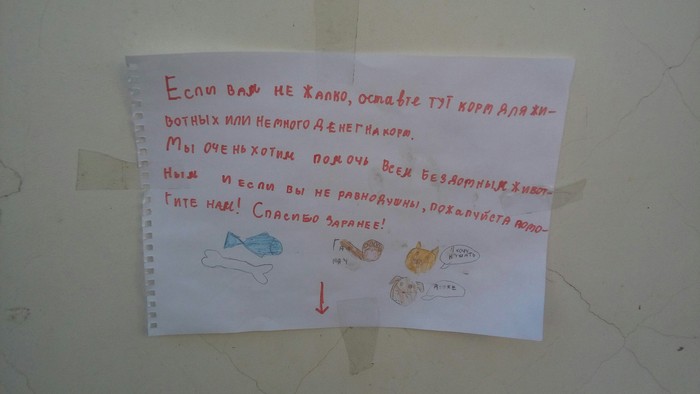 Если вам не жалко, оставте тут корм для жи-
вотных или немного денег на корм.
Мы очень хотим помочь всем бездомным живот-
ным и если вы не равнодушны, пожалуйста помо-
гите нам! Спасибо заранее!